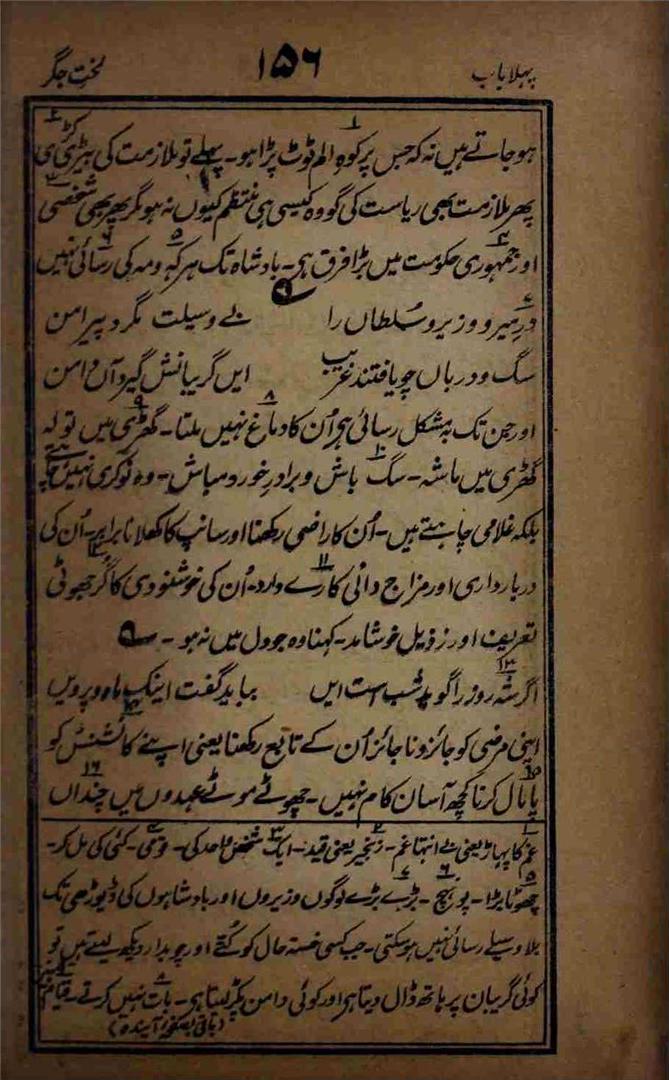 پہلا باب ۱۵۶ لختِ جگر
ہو جاتے ہیں نہ کہ جس پر کوہِ الم ٹوٹ پڑا ہو۔ پہلے تو ملازمت کی بیڑی کڑی
پھر ملازمت بھی ریاست کی گو وہ کیسی ہی منتظم کیوں نہ ہو مگر پھر بھی شخصی
اور جمہوری حکومت میں بڑا فرق ہی۔ بادشاہ تک ہر کہ و مہ کی رسائی نہیں
درِ میر و وزیر و سُلطاں را بے وسیلت مگرد پیرامن
سگ و درباں چو یافتند غریب ایں گریبانش گیرد آں دامن
اور جن تک بہ مشکل رسائی ہی اُن کا دماغ نہیں ملتا۔ گھڑی میں تولہ
گھڑی میں ماشہ۔ سگ باش و برادرِ خورد مباش۔ وہ نوکری نہیں چاہتے
بلکہ غلامی چاہتے ہیں۔ اُن کا راضی رکھنا اور سانپ کا کھلانا برابر۔ اُن کی
دربارداری اور مزاج دانی کارے دارد۔ اُن کی خوشنودی کا گُر جھوٹی
تعریف اور رذیل خوشامد۔ کہنا وہ جو دل میں نہ ہو۔
اگر شہ روز را گوید شب است ایں بباید گفت اینک ماہ و پرویں
اپنی مرضی کو جائز و ناجائز اُن کے تابع رکھنا یعنی اپنے کانشنس کو
پامال کرنا کچھ آسان کام نہیں۔ چھوٹے موٹے عہدوں میں چنداں
۱ غم کا پہاڑ یعنی بے انتہا غم۔ ۲ زنجیر یعنی قید۔ ۳ ایک شخص واحد کی۔ ۴ قومی۔ کئی کی مل کر۔
۵ چھوٹا بڑا۔ ۶ پونہچ۔ ۷ بڑے بڑے لوگوں وزیروں اور بادشاہوں کی ڈیوڑھی تک
بلا وسیلے رسائی نہیں ہو سکتی۔ جب کسی خستہ حال کو کُتّے اور چوبدار دیکھ لیتے ہیں تو
کوئی گریبان پر ہاتھ ڈال دیتا ہی اور کوئی دامن پکڑ لیتا ہی۔ ۸ بات نہیں کرتے۔
(باقی بصفحۂ آیندہ)